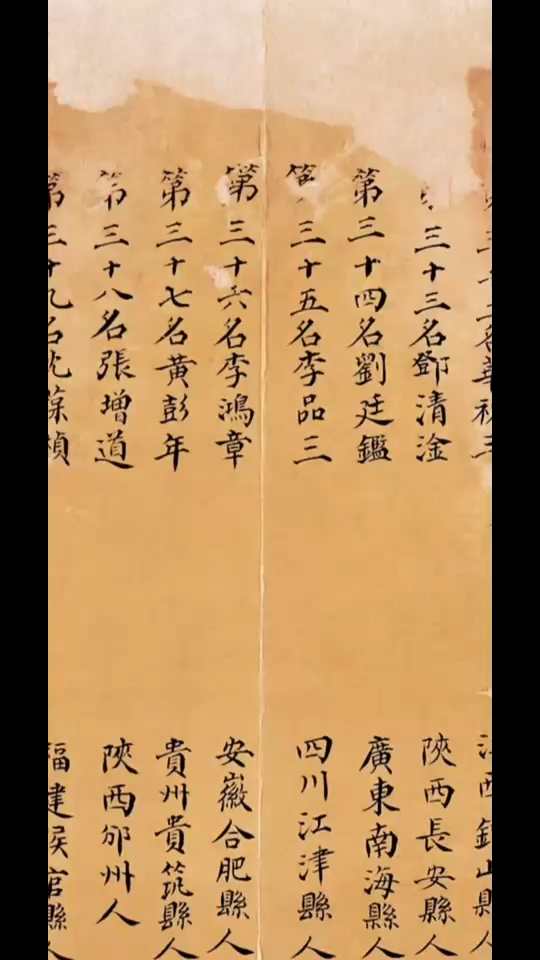 三十二名華祝三
江西鉛山縣人
三十三名鄧清淦
陝西長安縣人
第三十四名劉廷鑑
廣東南海縣人
第三十五名李品三
四川江津縣人
第三十六名李鴻章
安徽合肥縣人
第三十七名黃彭年
貴州貴筑縣人
第三十八名張增道
陝西邠州人
第三十九名沈葆楨
福建侯官縣人